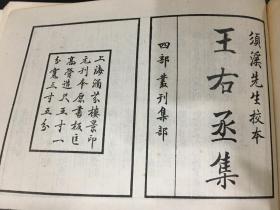 須溪先生校本
王右丞集
四部叢刊集部
上海涵芬樓景印
元刊本原書板匡
高營造尺五寸一
分寬三寸五分